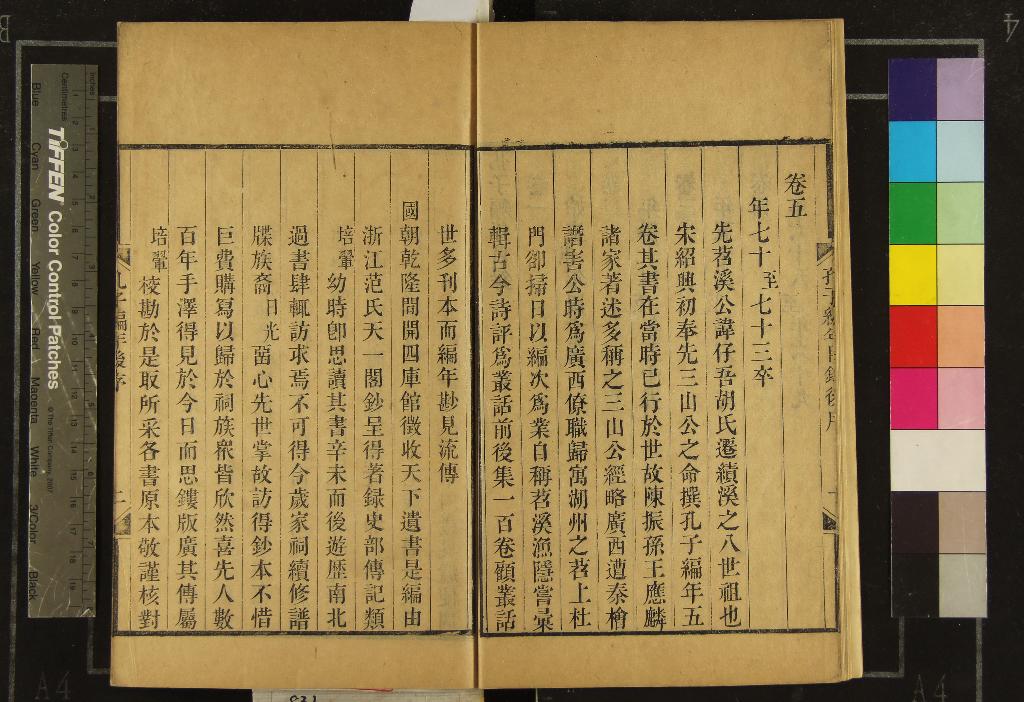 卷五
年七十至七十三卒
先苕溪公諱仔吾胡氏遷績溪之八世祖也
宋紹興初奉先三山公之命撰孔子編年五
卷其書在當時已行於世故陳振孫王應麟
諸家著述多稱之三山公經略廣西遭秦檜
譖害公時爲廣西僚職歸寓湖州之苕上杜
門卻掃日以編次爲業自稱苕溪漁隱嘗彙
輯古今詩評爲叢話前後集一百卷顧叢話
世多刊本而編年尠見流傳
國朝乾隆間開四庫館徵收天下遺書是編由
浙江范氏天一閣鈔呈得著録史部傳記類
培翬幼時卽思讀其書辛未而後遊歷南北
過書肆輒訪求焉不可得今歲家祠續修譜
牒族裔日光畱心先世掌故訪得鈔本不惜
巨費購寫以歸於祠族衆皆欣然喜先人數
百年手澤得見於今日而思鏤版廣其傳屬
培翬校勘於是取所采各書原本敬謹核對
孔子編年後序
二
TIFFEN Color Control Patches
© The Tiffen Company, 2007
Centimetres
Inches
Blue
Cyan
Green
Yellow
Red
Magenta
White
3/Color
Black
A4
A4